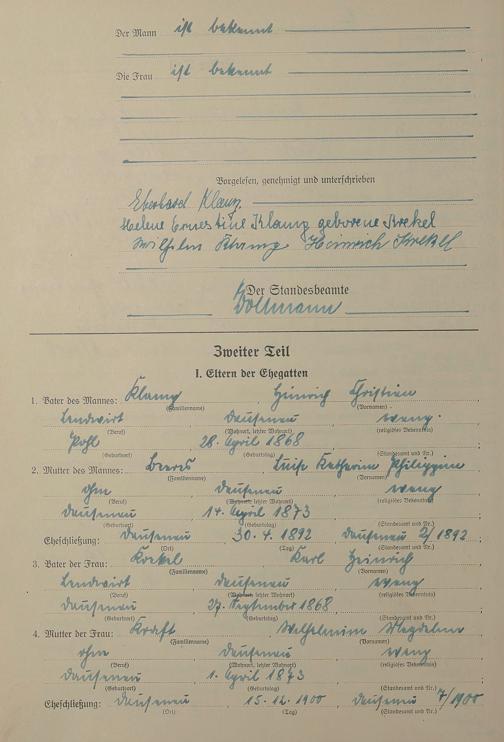 Der Mann ist bekannt
Die Frau ist bekannt
Vorgelesen, genehmigt und unterschrieben
Eberhard Klamp
Helene Ernestine Klamp geborene Krekel
Wilhelm Klamp Heinrich Krekel
Der Standesbeamte
Dollmann
Zweiter Teil
I. Eltern der Ehegatten
1. Vater des Mannes: Klamp Heinrich Christian
(Familienname) (Vornamen)
Landwirt Dausenau evang.
(Beruf) (Wohnort, letzter Wohnort) (religiöses Bekenntnis)
Pohl 28. April 1868
(Geburtsort) (Geburtstag) (Standesamt und Nr.)
2. Mutter des Mannes: Luise Katharine Philippine
(Familienname) (Vornamen)
ohne Dausenau evang
(Beruf) (Wohnort, letzter Wohnort) (religiöses Bekenntnis)
Dausenau 14. April 1873
(Geburtsort) (Geburtstag) (Standesamt und Nr.)
Eheschließung: Dausenau 30. 4. 1892 Dausenau 2/1892
(Ort) (Tag) (Standesamt und Nr.)
3. Vater der Frau: Krekel Karl Heinrich
(Familienname) (Vornamen)
Landwirt Dausenau evang
(Beruf) (Wohnort, letzter Wohnort) (religiöses Bekenntnis)
Dausenau 27. September 1868
(Geburtsort) (Geburtstag) (Standesamt und Nr.)
4. Mutter der Frau: Kraft Wilhelmine Magdalene
(Familienname) (Vornamen)
ohne Dausenau evang
(Beruf) (Wohnort, letzter Wohnort) (religiöses Bekenntnis)
Dausenau 1. April 1873
(Geburtsort) (Geburtstag) (Standesamt und Nr.)
Eheschließung: Dausenau 15. 12. 1900 Dausenau 7/1900
(Ort) (Tag) (Standesamt und Nr.)